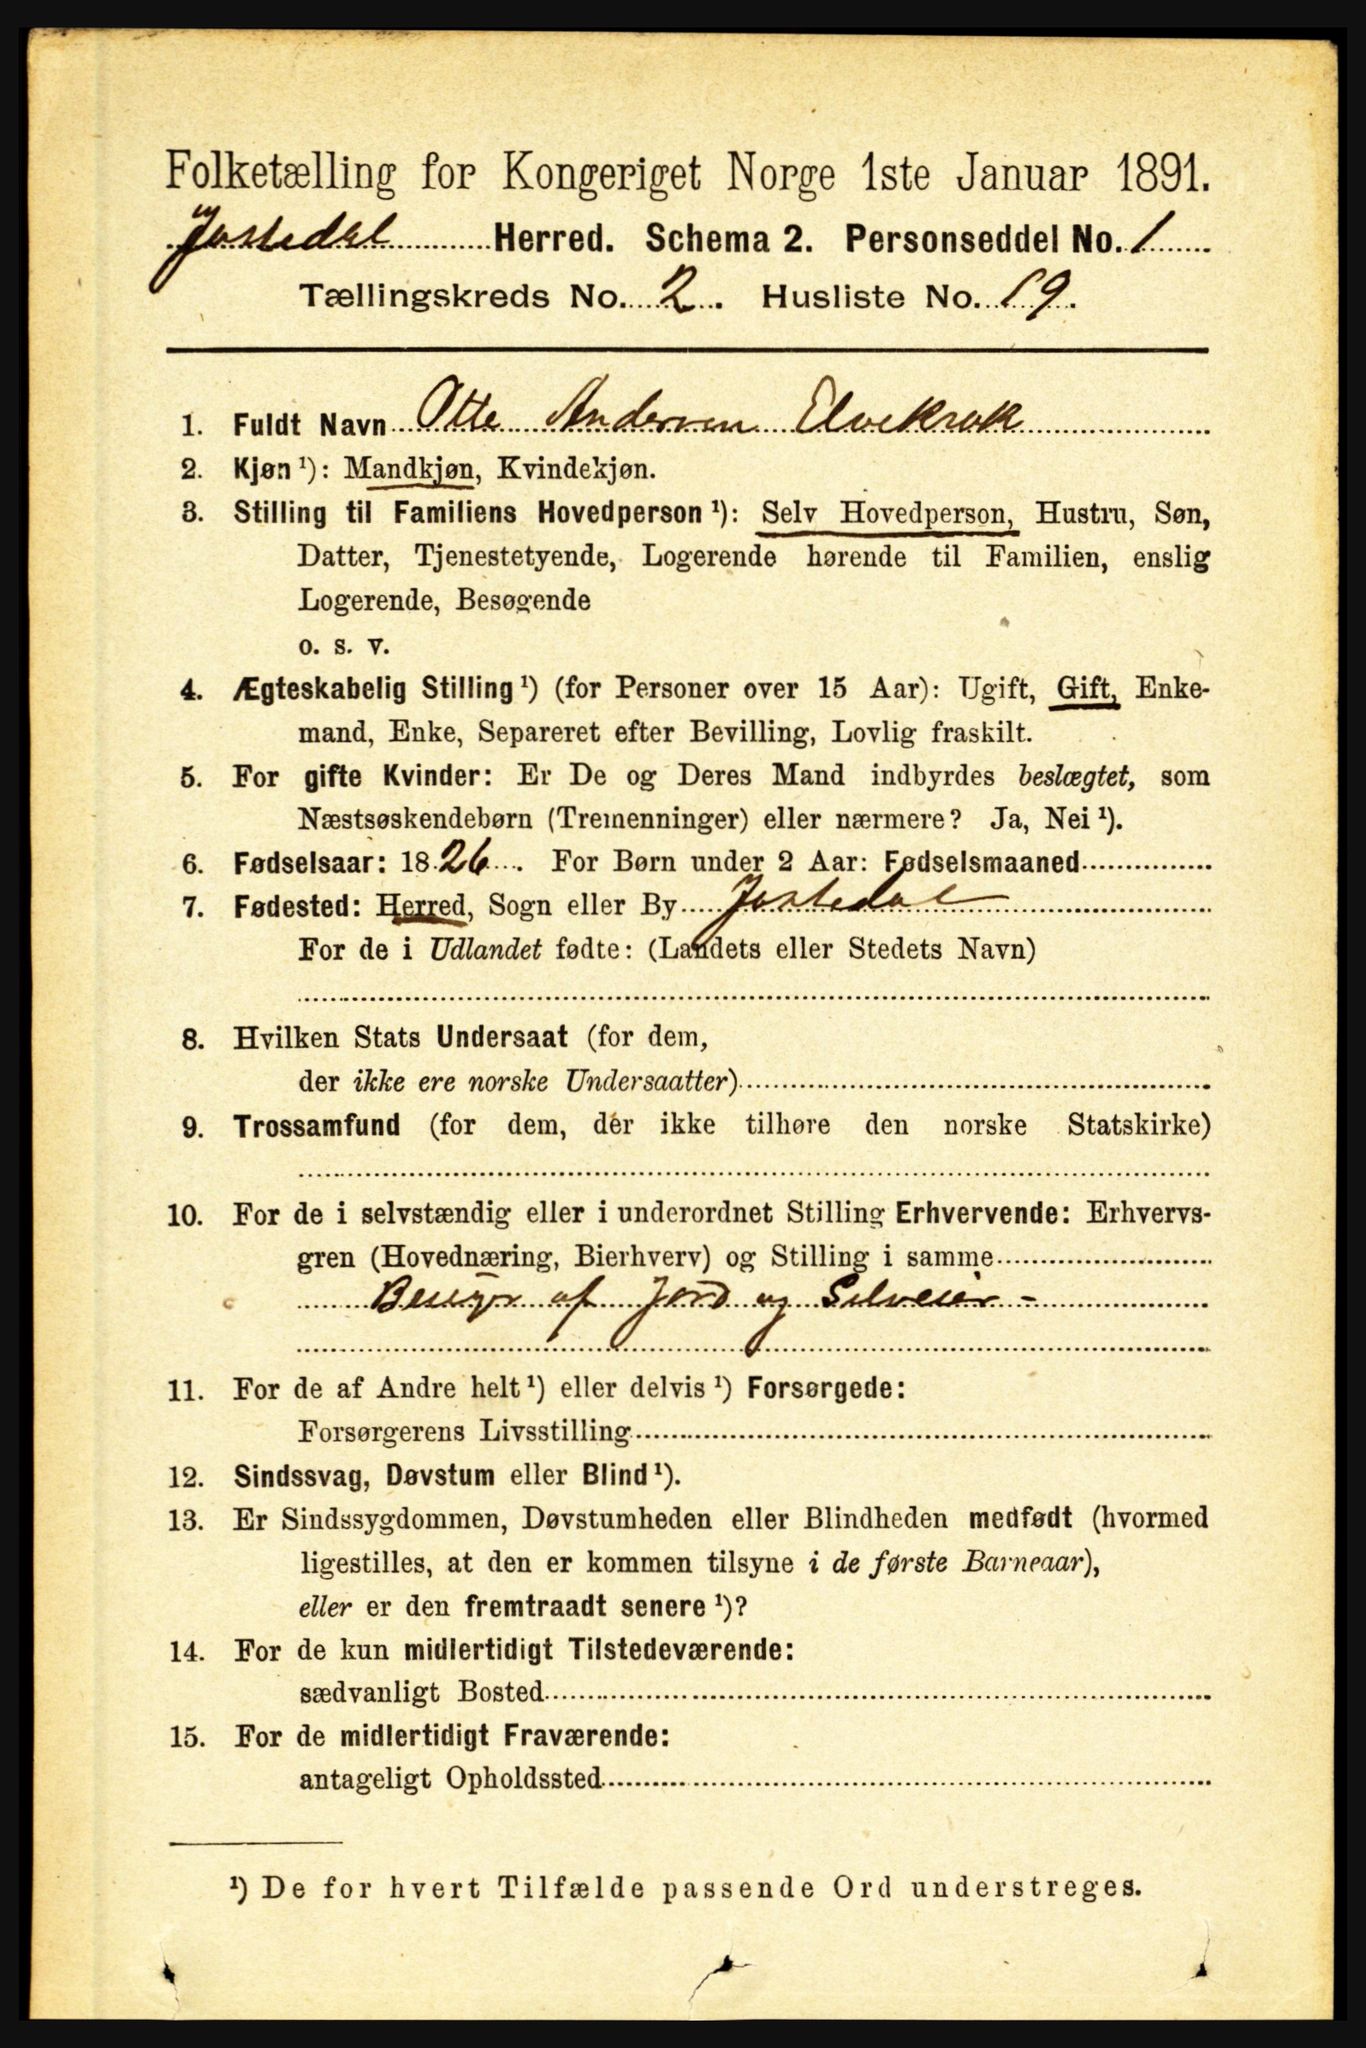 Folketælling for Kongeriget Norge 1ste Januar 1891.
Jostedal Herred. Schema 2. Personseddel No. 1
Tællingskreds No. 2. Husliste No. 19.
1. Fuldt Navn Otte Andersen Elvekrok
2. Kjøn ¹): Mandkjøn, Kvindekjøn.
3. Stilling til Familiens Hovedperson ¹): Selv Hovedperson, Hustru, Søn,
Datter, Tjenestetyende, Logerende hørende til Familien, enslig
Logerende, Besøgende
o. s. v.
4. Ægteskabelig Stilling ¹) (for Personer over 15 Aar): Ugift, Gift, Enke-
mand, Enke, Separeret efter Bevilling, Lovlig fraskilt.
5. For gifte Kvinder: Er De og Deres Mand indbyrdes beslægtet, som
Næstsøskendebørn (Tremenninger) eller nærmere? Ja, Nei ¹).
6. Fødselsaar: 1826. For Børn under 2 Aar: Fødselsmaaned
7. Fødested: Herred, Sogn eller By Jostedal
For de i Udlandet fødte: (Landets eller Stedets Navn)
8. Hvilken Stats Undersaat (for dem,
der ikke ere norske Undersaatter)
9. Trossamfund (for dem, der ikke tilhøre den norske Statskirke)
10. For de i selvstændig eller i underordnet Stilling Erhvervende: Erhvervs-
gren (Hovednæring, Bierhverv) og Stilling i samme
Besiger af Jord og Selveier -
11. For de af Andre helt ¹) eller delvis ¹) Forsørgede:
Forsørgerens Livsstilling
12. Sindssvag, Døvstum eller Blind ¹).
13. Er Sindssygdommen, Døvstumheden eller Blindheden medfødt (hvormed
ligestilles, at den er kommen tilsyne i de første Barneaar),
eller er den fremtraadt senere ¹)?
14. For de kun midlertidigt Tilstedeværende:
sædvanligt Bosted
15. For de midlertidigt Fraværende:
antageligt Opholdssted
¹) De for hvert Tilfælde passende Ord understreges.